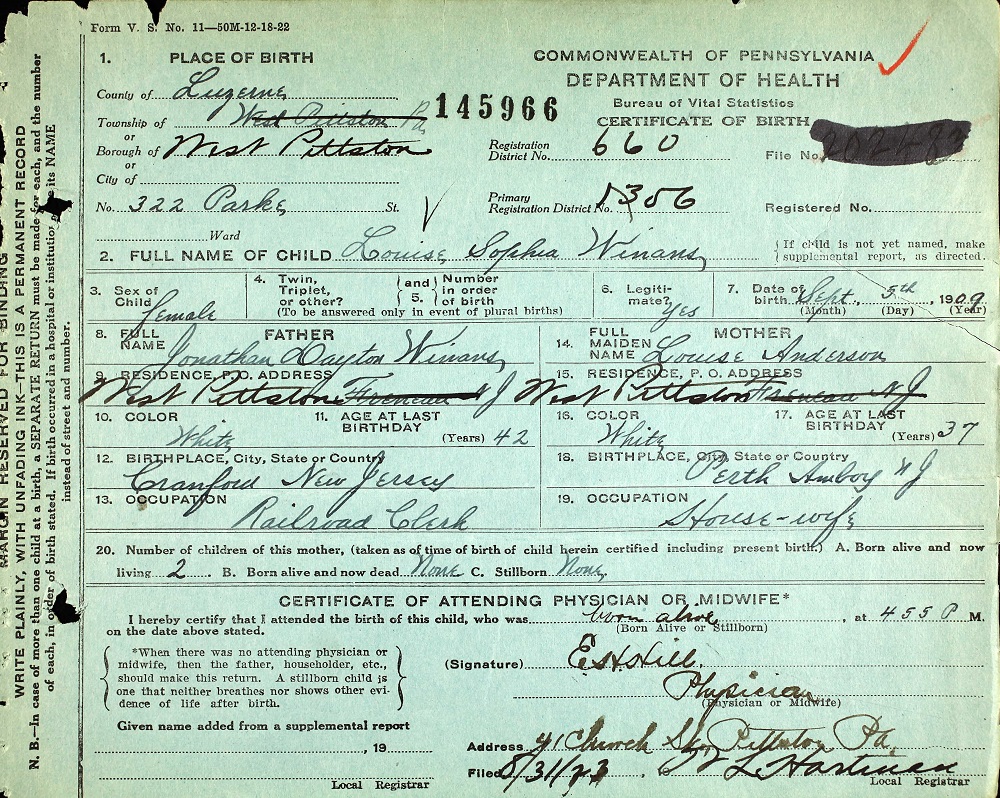 Form V. S. No. 11—50M-12-18-22
1. PLACE OF BIRTH
County of Luzerne
Township of West Pittston Pa
or
Borough of West Pittston
or
City of
No. 322 Parke St.
Ward
145966
COMMONWEALTH OF PENNSYLVANIA
DEPARTMENT OF HEALTH
Bureau of Vital Statistics
CERTIFICATE OF BIRTH
Registration District No. 660
File No.
Primary Registration District No. 1306
Registered No.
2. FULL NAME OF CHILD Louise Sophia Winans
If child is not yet named, make
supplemental report, as directed.
3. Sex of Child Female
4. Twin, Triplet, or other?
and
5. Number in order of birth
(To be answered only in event of plural births)
6. Legitimate? Yes
7. Date of birth Sept. 5th, 1909
(Month) (Day) (Year)
FATHER
8. FULL NAME Jonathan Dayton Winans
9. RESIDENCE, P.O. ADDRESS
West Pittston Freneau N J
10. COLOR White
11. AGE AT LAST BIRTHDAY (Years) 42
12. BIRTHPLACE, City, State or Country
Cranford New Jersey
13. OCCUPATION
Railroad Clerk
MOTHER
14. FULL MAIDEN NAME Louise Anderson
15. RESIDENCE, P. O. ADDRESS
West Pittston Freneau N J
16. COLOR White
17. AGE AT LAST BIRTHDAY (Years) 37
18. BIRTHPLACE, City, State or Country
Perth Amboy N J
19. OCCUPATION
House-wife
20. Number of children of this mother, (taken as of time of birth of child herein certified including present birth.) A. Born alive and now
living 2 B. Born alive and now dead None C. Stillborn None
CERTIFICATE OF ATTENDING PHYSICIAN OR MIDWIFE*
I hereby certify that I attended the birth of this child, who was born alive, at 455 P M.
(Born Alive or Stillborn)
on the date above stated.
*When there was no attending physician or
midwife, then the father, householder, etc.,
should make this return. A stillborn child is
one that neither breathes nor shows other evi-
dence of life after birth.
(Signature) E. H. Hill.
Physician
(Physician or Midwife)
Given name added from a supplemental report
, 19
Local Registrar
Address 41 Church St, Pittston Pa.
Filed 8/31/23 W L Hartman
Local Registrar
MARGIN RESERVED FOR BINDING
WRITE PLAINLY, WITH UNFADING INK—THIS IS A PERMANENT RECORD
N. B.—In case of more than one child at a birth, a SEPARATE RETURN must be made for each, and the number
of each, in order of birth stated. If birth occurred in a hospital or institution, its NAME
instead of street and number.